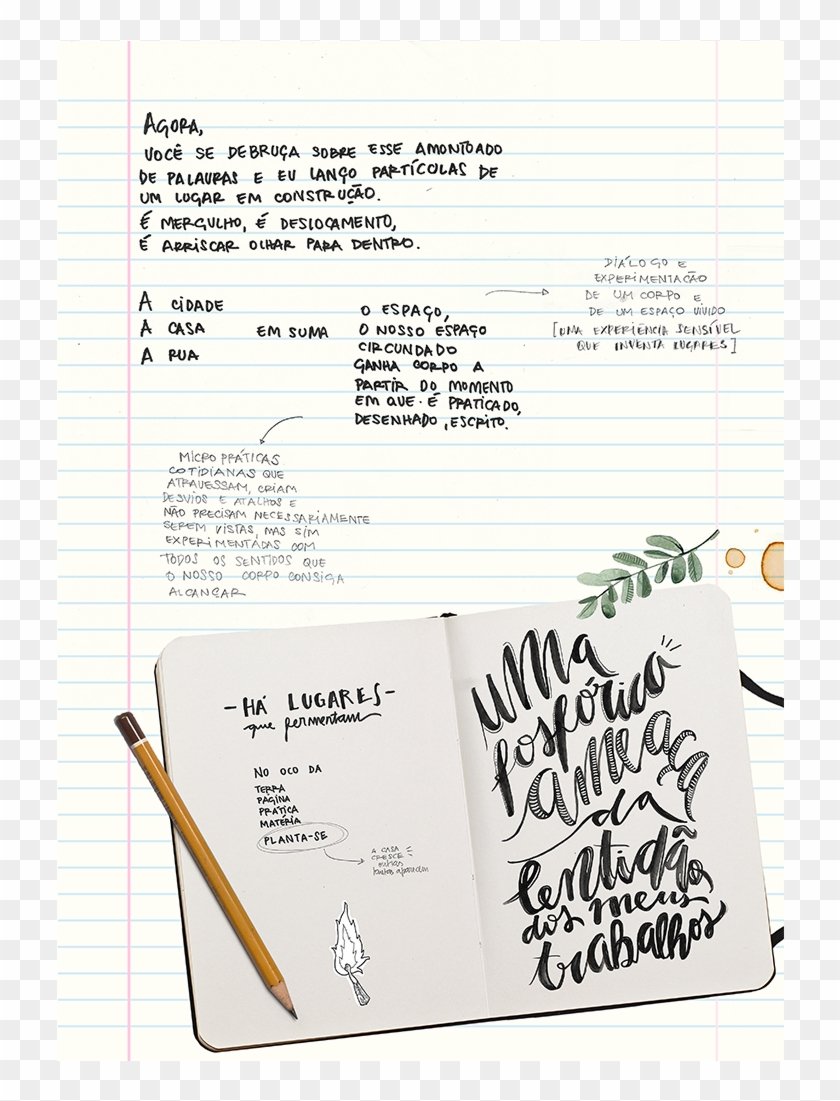 AGORA,
VOCÊ SE DEBRUÇA SOBRE ESSE AMONTOADO
DE PALAVRAS E EU LANÇO PARTÍCULAS DE
UM LUGAR EM CONSTRUÇÃO.
É MERGULHO, É DESLOCAMENTO,
É ARRISCAR OLHAR PARA DENTRO.
A CIDADE
A CASA
A RUA
EM SUMA
O ESPAÇO,
O NOSSO ESPAÇO
CIRCUNDADO
GANHA CORPO A
PARTIR DO MOMENTO
EM QUE É PRATICADO,
DESENHADO, ESCRITO.
DIÁLOGO E
EXPERIMENTAÇÃO
DE UM CORPO E
DE UM ESPAÇO VIVIDO
[UMA EXPERIÊNCIA SENSÍVEL
QUE INVENTA LUGARES]
MICRO PRÁTICAS
COTIDIANAS QUE
ATRAVESSAM, CRIAM
DESVIOS E ATALHOS E
NÃO PRECISAM NECESSARIAMENTE
SEREM VISTAS, MAS SIM
EXPERIMENTADAS COM
TODOS OS SENTIDOS QUE
O NOSSO CORPO CONSIGA
ALCANÇAR
-HÁ LUGARES-
que fermentam
NO OCO DA
TERRA
PÁGINA
PRÁTICA
MATÉRIA
PLANTA-SE
A CASA
CRESCE
outras
tantas aparecem
uma
fosfórica
ameaça
da
lentidão
dos meus
trabalhos